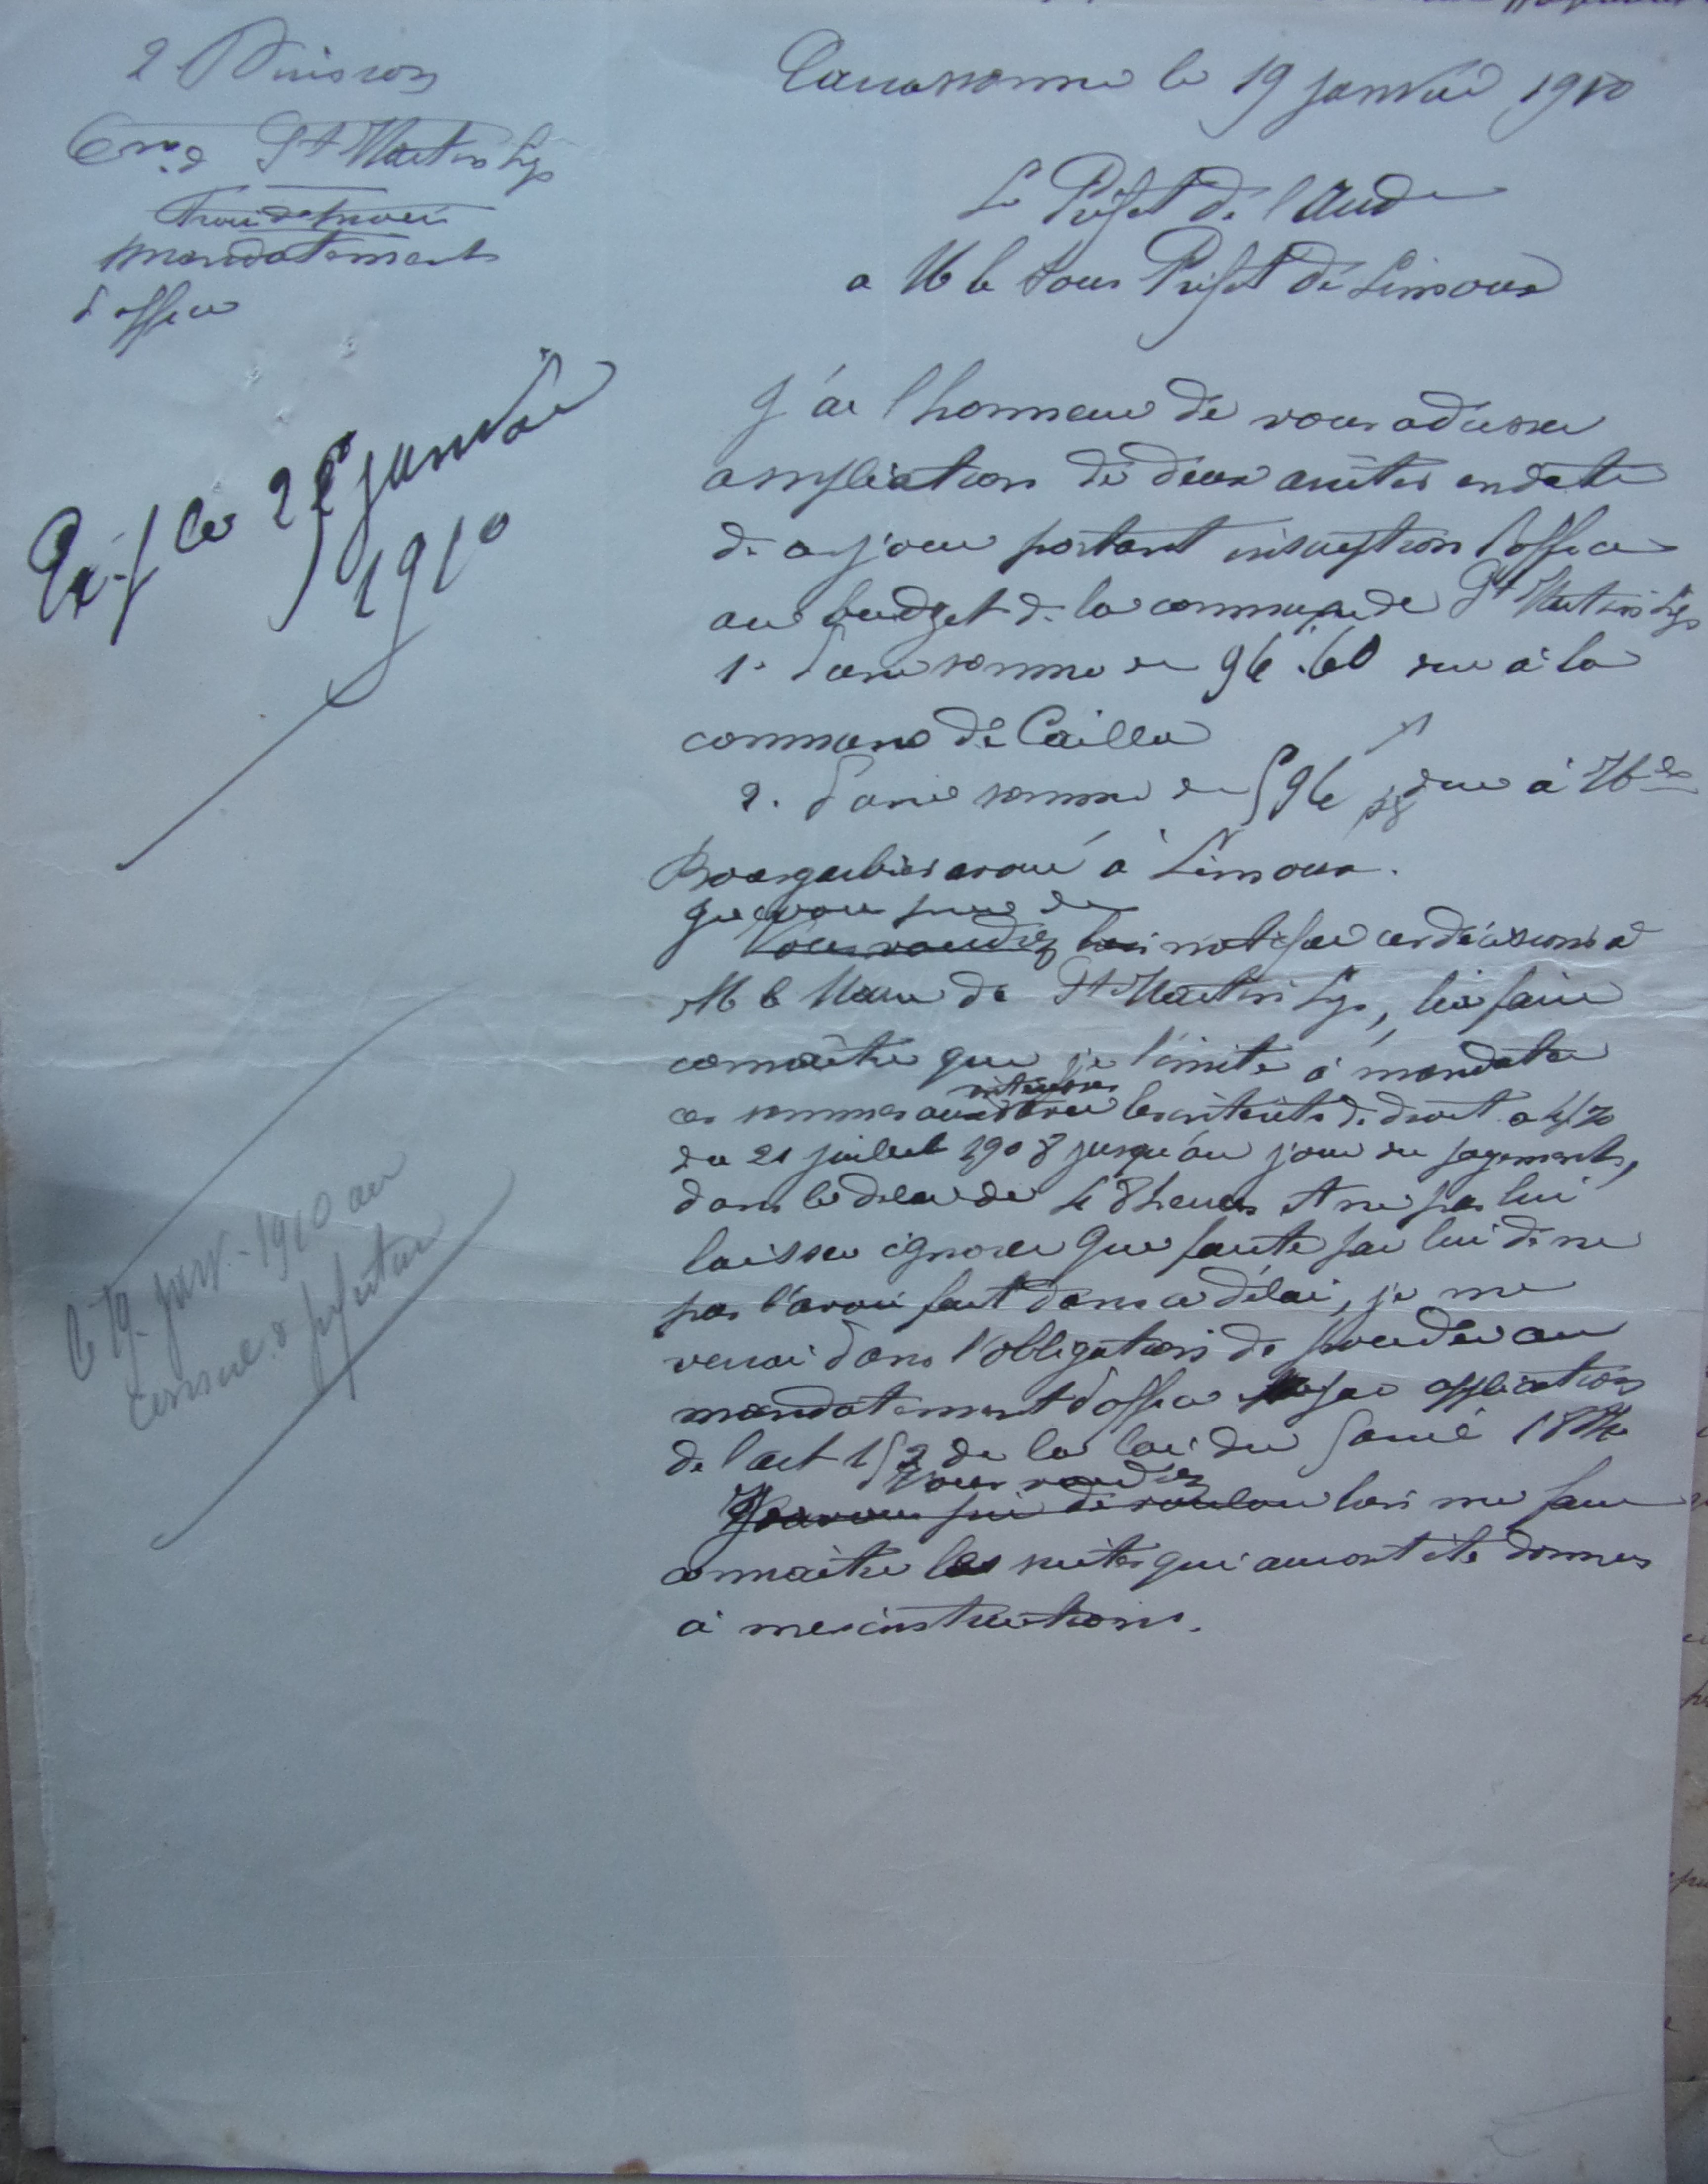 2 Division
Cne de St Martin Lys
Frais de procès
mandatement
d'office
Exp. le 21 janvier
1910
le 19 janv. 1910 au
conseil de préfecture
Carcassonne le 19 janvier 1910
Le Préfet de l'Aude
a M le Sous Préfet de Limoux
J'ai l'honneur de vous adresser
ampliation de deux arrêtés en date
de ce jour portant inscription d'office
au budget de la commune de St Martin Lys
1° d'une somme de 96.60 due à la
commune de Cailla
2. d'une somme de 596 due à Me
avoué à Limoux.
Je vous prie de
Vous voudrez bien notifier ces décisions à
M le Maire de St Martin Lys, lui faire
connaître que je l'invite à mandater
ces sommes avec les intérêts de droit a 4%
du 21 juillet 1908 jusqu'au jour du payement,
dans le délai de 48 heures et ne pas lui
laisser ignorer que faute par lui de ne
pas l'avoir fait dans ce délai, je me
verrai dans l'obligation de procéder au
mandatement d'office par application
de l'art 152 de la loi du 5 avril 1884
Vous voudrez
Je vous prie de vouloir bien me faire
connaître les suites qui auront été données
à mes instructions.